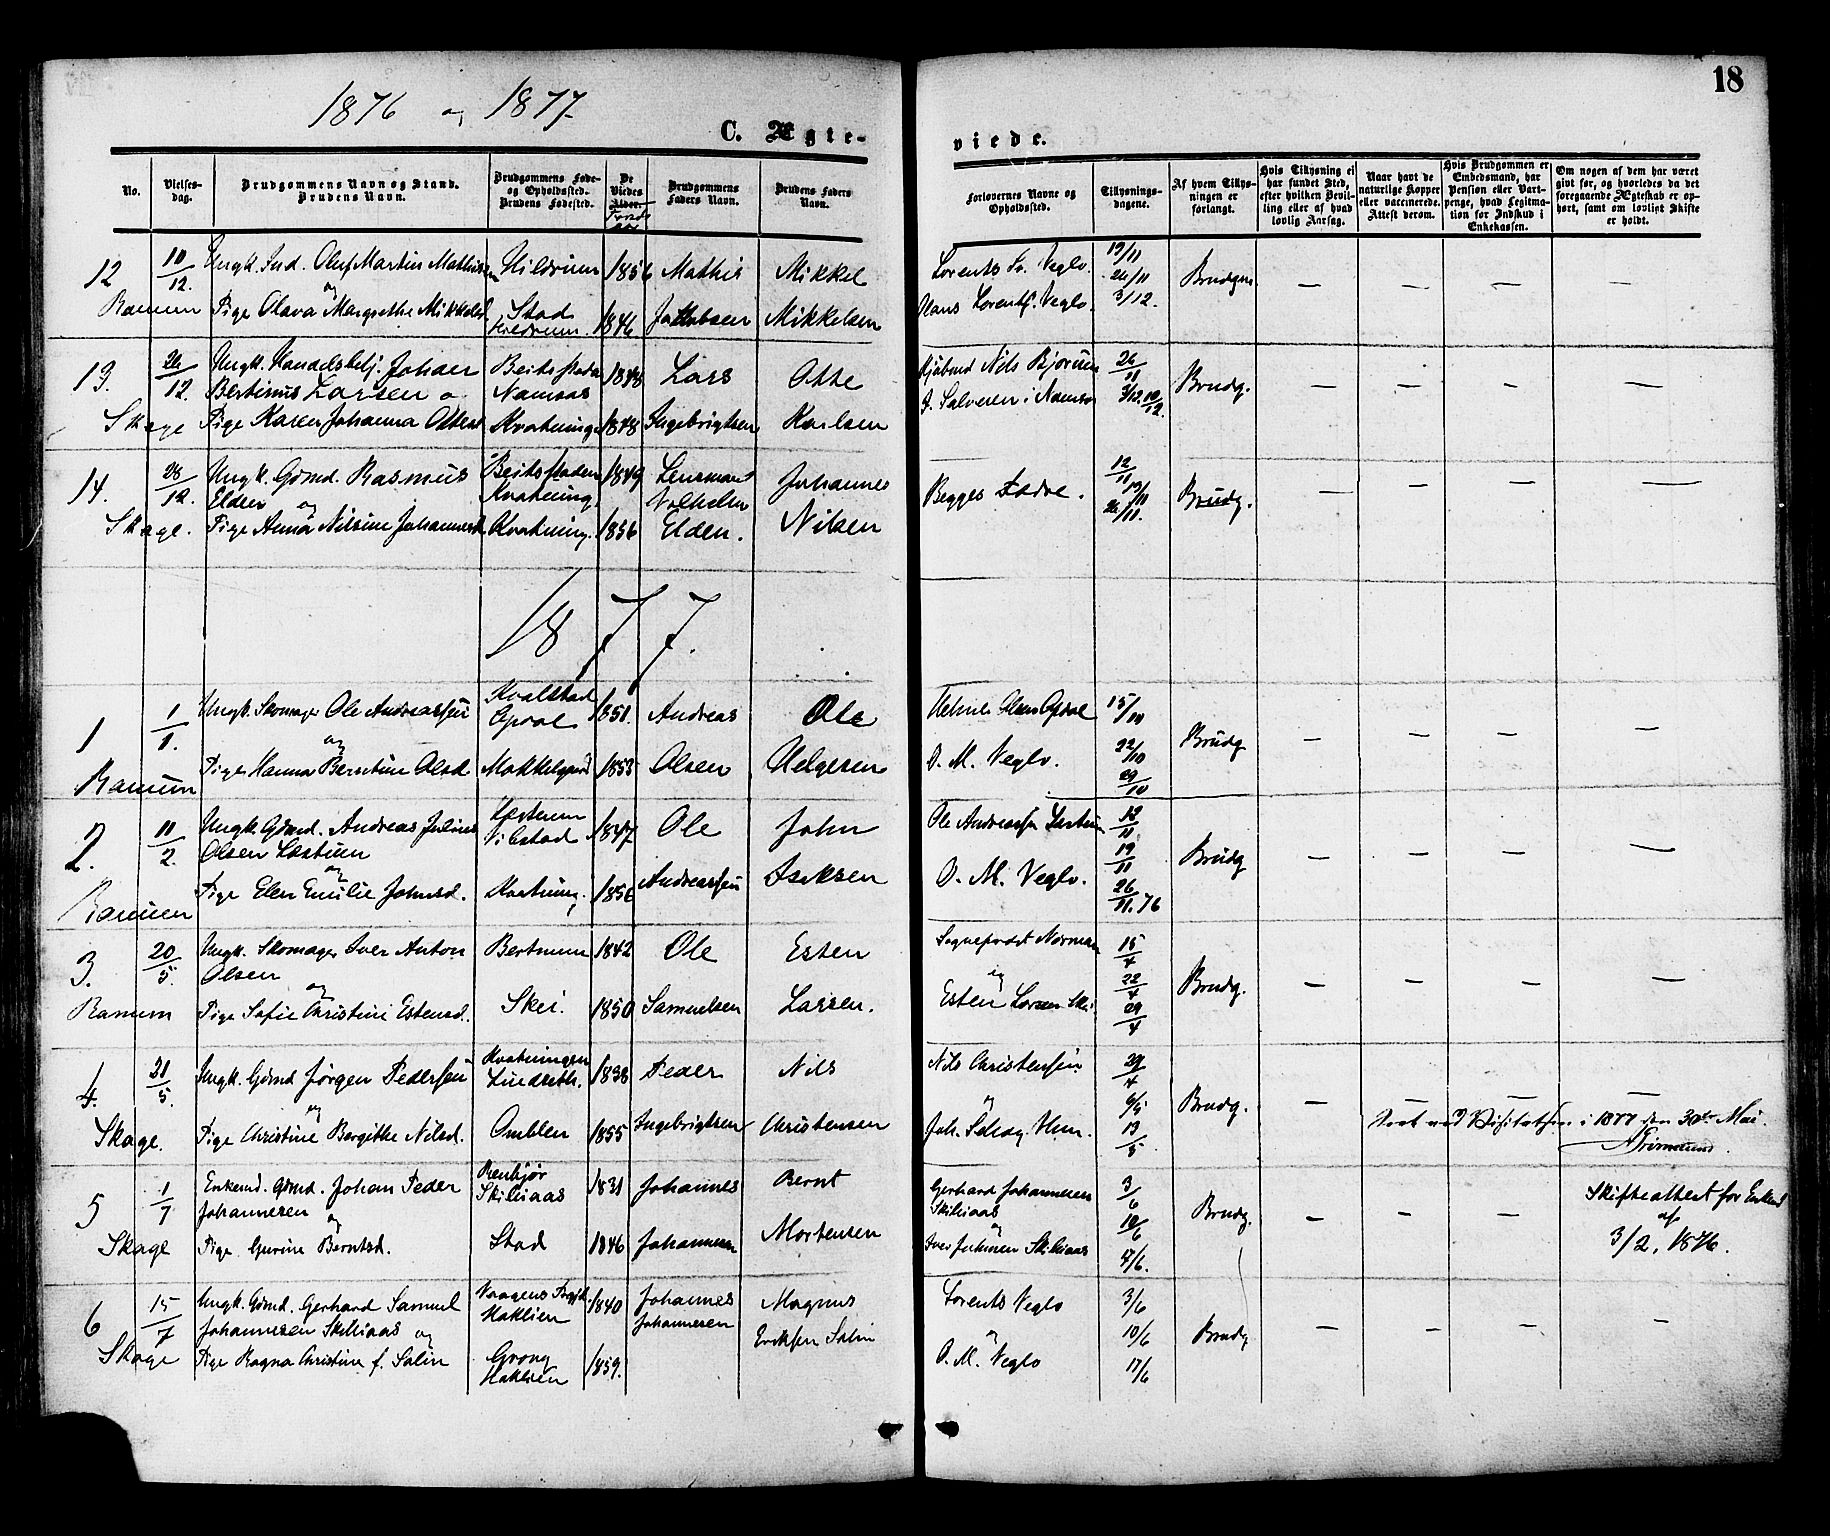 18
1876 og 1877.
C. Ægte-
viede.
No.
Vielses-
dag.
Brudgommens Navn og Stand.
Brudens Navn.
Brudgommens Føde-
og Opholdssted.
Brudens Fødested.
De
Viedes
Alder.
Brudgommens
Faders Navn.
Brudens Faders
Navn.
Forlovernes Navne og
Opholdssted.
Tillysnings-
dagene.
Af hvem Tillys-
ningen er
forlangt.
Hvis Tillysning ei
har fundet Sted,
efter hvilken Bevil-
ling eller af hvad
lovlig Aarsag.
Naar havt de
naturlige Kopper
eller vaccinerede.
Attest derom.
Hvis Brudgommen er
Embedsmand, har
Pension eller Vart-
penge, hvad Legitima-
tion for Indskud i
Enkekassen.
Om nogen af dem har været
gift før, og hvorledes da det
foregaaende Ægteskab er op-
hørt, samt om lovligt Skifte
er holdt.
12 10/12. Ungk. Ind. Oluf Martin Mathisen Hildrum 1856 Mathis Mikkel
og
Ranum Pige Olava Margrethe Mikkelsd. Stad Hildrum. 1846 Jakobsen Mikkelsen
Lorents Veglo. 19/11
26/11 Brudgm. — — — —
Hans Lorents. Veglo. 3/12.
13. 26/12. Ungk. Handelsbetj. Johan Beitstaden 1848 Lars Otte
Bertinus Larsen o Namsos
Skage Pige Karen Johanna Ottesd. Kvatninge 1848 Ingebrigtsen Karlsen
Nils Bjørum 26/11
Salvesen i Namsos 3/12. 10/12. Brudg. — — — —
14. 28/12 Ungk. Gdmd. Rasmus Beitstaden 1849 Lensmand Johannes
Elden og Kvatning. Vilhelm
Skage. Pige Anna Nilsine Johannesd. Kvatning. 1856 Elden. Nilsen
Begges Fædre. 12/11 19/11 26/11. Brudg. — — — —
1877.
1 1/1. Ungk. Skomager Ole Andreassen Kvalstad 1851. Andreas Ole
Opdal
og
Ranum Pige Hanna Berntine Olsd. Mokkelgjord 1853 Olsen Helgesen
Helmer Olsen Opdal 15/10
O. M. Veglo. 22/10 29/10 Brudg — — — —
2. 11/2. Ungk. Gdmd. Andreas Julius Læsterum 1847 Ole John
Olsen Læstum Vibstad
og
Ranum Pige Elen Emilie Johnsd. Kvatning, 1856 Andreassen Isaksen
Ole Andreassen Læstum 12/11
19/11
O. M. Veglo. 26/11. 76 Brudg — — — —
3. 20/5. Ungk. Skomager Iver Anton Bertnum 1842 Ole Esten
Olsen
og
Ranum Pige Sofie Christine Estensd. Skei. 1850 Samuelsen Larsen.
Sognepræst Norman 15/4
og 22/4
Esten Larsen Skei 29/4 Brudg. — — — —
4. 31/5. Ungk. Gdmd Jørgen Pedersen Kvatningen 1838 Peder Nils
Lindseth.
og
Skage. Pige Christine Bergitte Nilsd. Omblen 1855 Ingebrigtsen Christensen
Nils Christensen 29/4
og 6/5
13/5 Brudg. — — — —
Seet ved Visitatsen i 1877 den 30te Mai.
5 1/7 Enkemd. Gdmd. Johan Peder Renbjør 1831 Johannes Bernt
Johannesen Skiliaas
og
Skage Pige Gurine Berntsd. Stad 1846 Johannesen Mortensen
Gerhard Johannesen 3/6
Skiliaas 10/6
og
Iver Johnsen Skiliaas 17/6. Brudg. — — —
Skifteattest for Enkemd
af
3/2, 1876.
6 15/7 Ungk. Gdmd. Gerhard Samuel 1840 Johannes Magnus
Johannesen Skiliaas og Haklien Johannesen Eriksen Solin
Skage Pige Ragna Christine f. Solin Grong 1859.
Haklien
Lorents Veglo 3/6
og 10/6
O. M. Veglo 17/6 Brudg — — — —